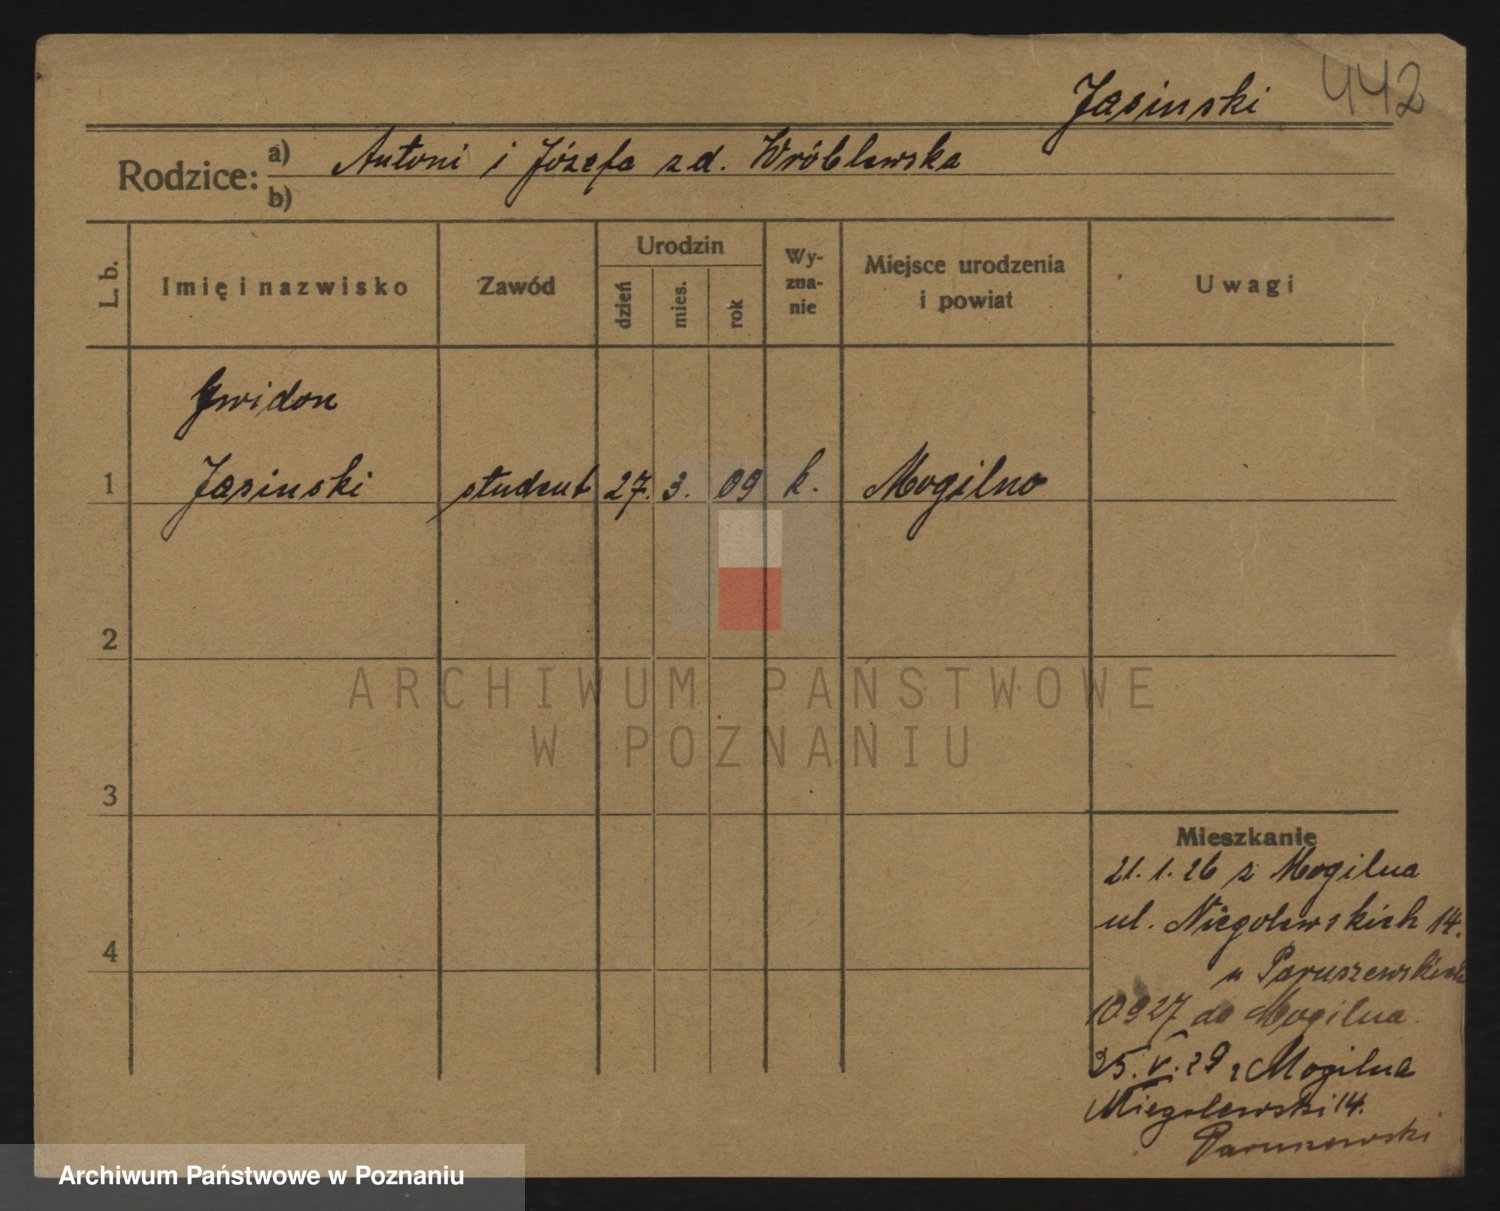 Jasinski 442
Rodzice: a) Antoni i Józefa zd. Wróblewska
b)
L. b. Imię i nazwisko Zawód Urodzin dzień mies. rok Wy-zna-nie Miejsce urodzenia i powiat Uwagi
Gwidon
1 Jasinski student 27. 3. 09 k. Mogilno
2
ARCHIWUM PAŃSTWOWE
W POZNANIU
3
Mieszkanie
21. 1. 26 z Mogilna
ul. Niegolewskich 14.
4
u Paruszewskich
10 9 27 do Mogilna
25. V. 29 z Mogilna
Niegolewski 14.
Paruszewski
Archiwum Państwowe w Poznaniu